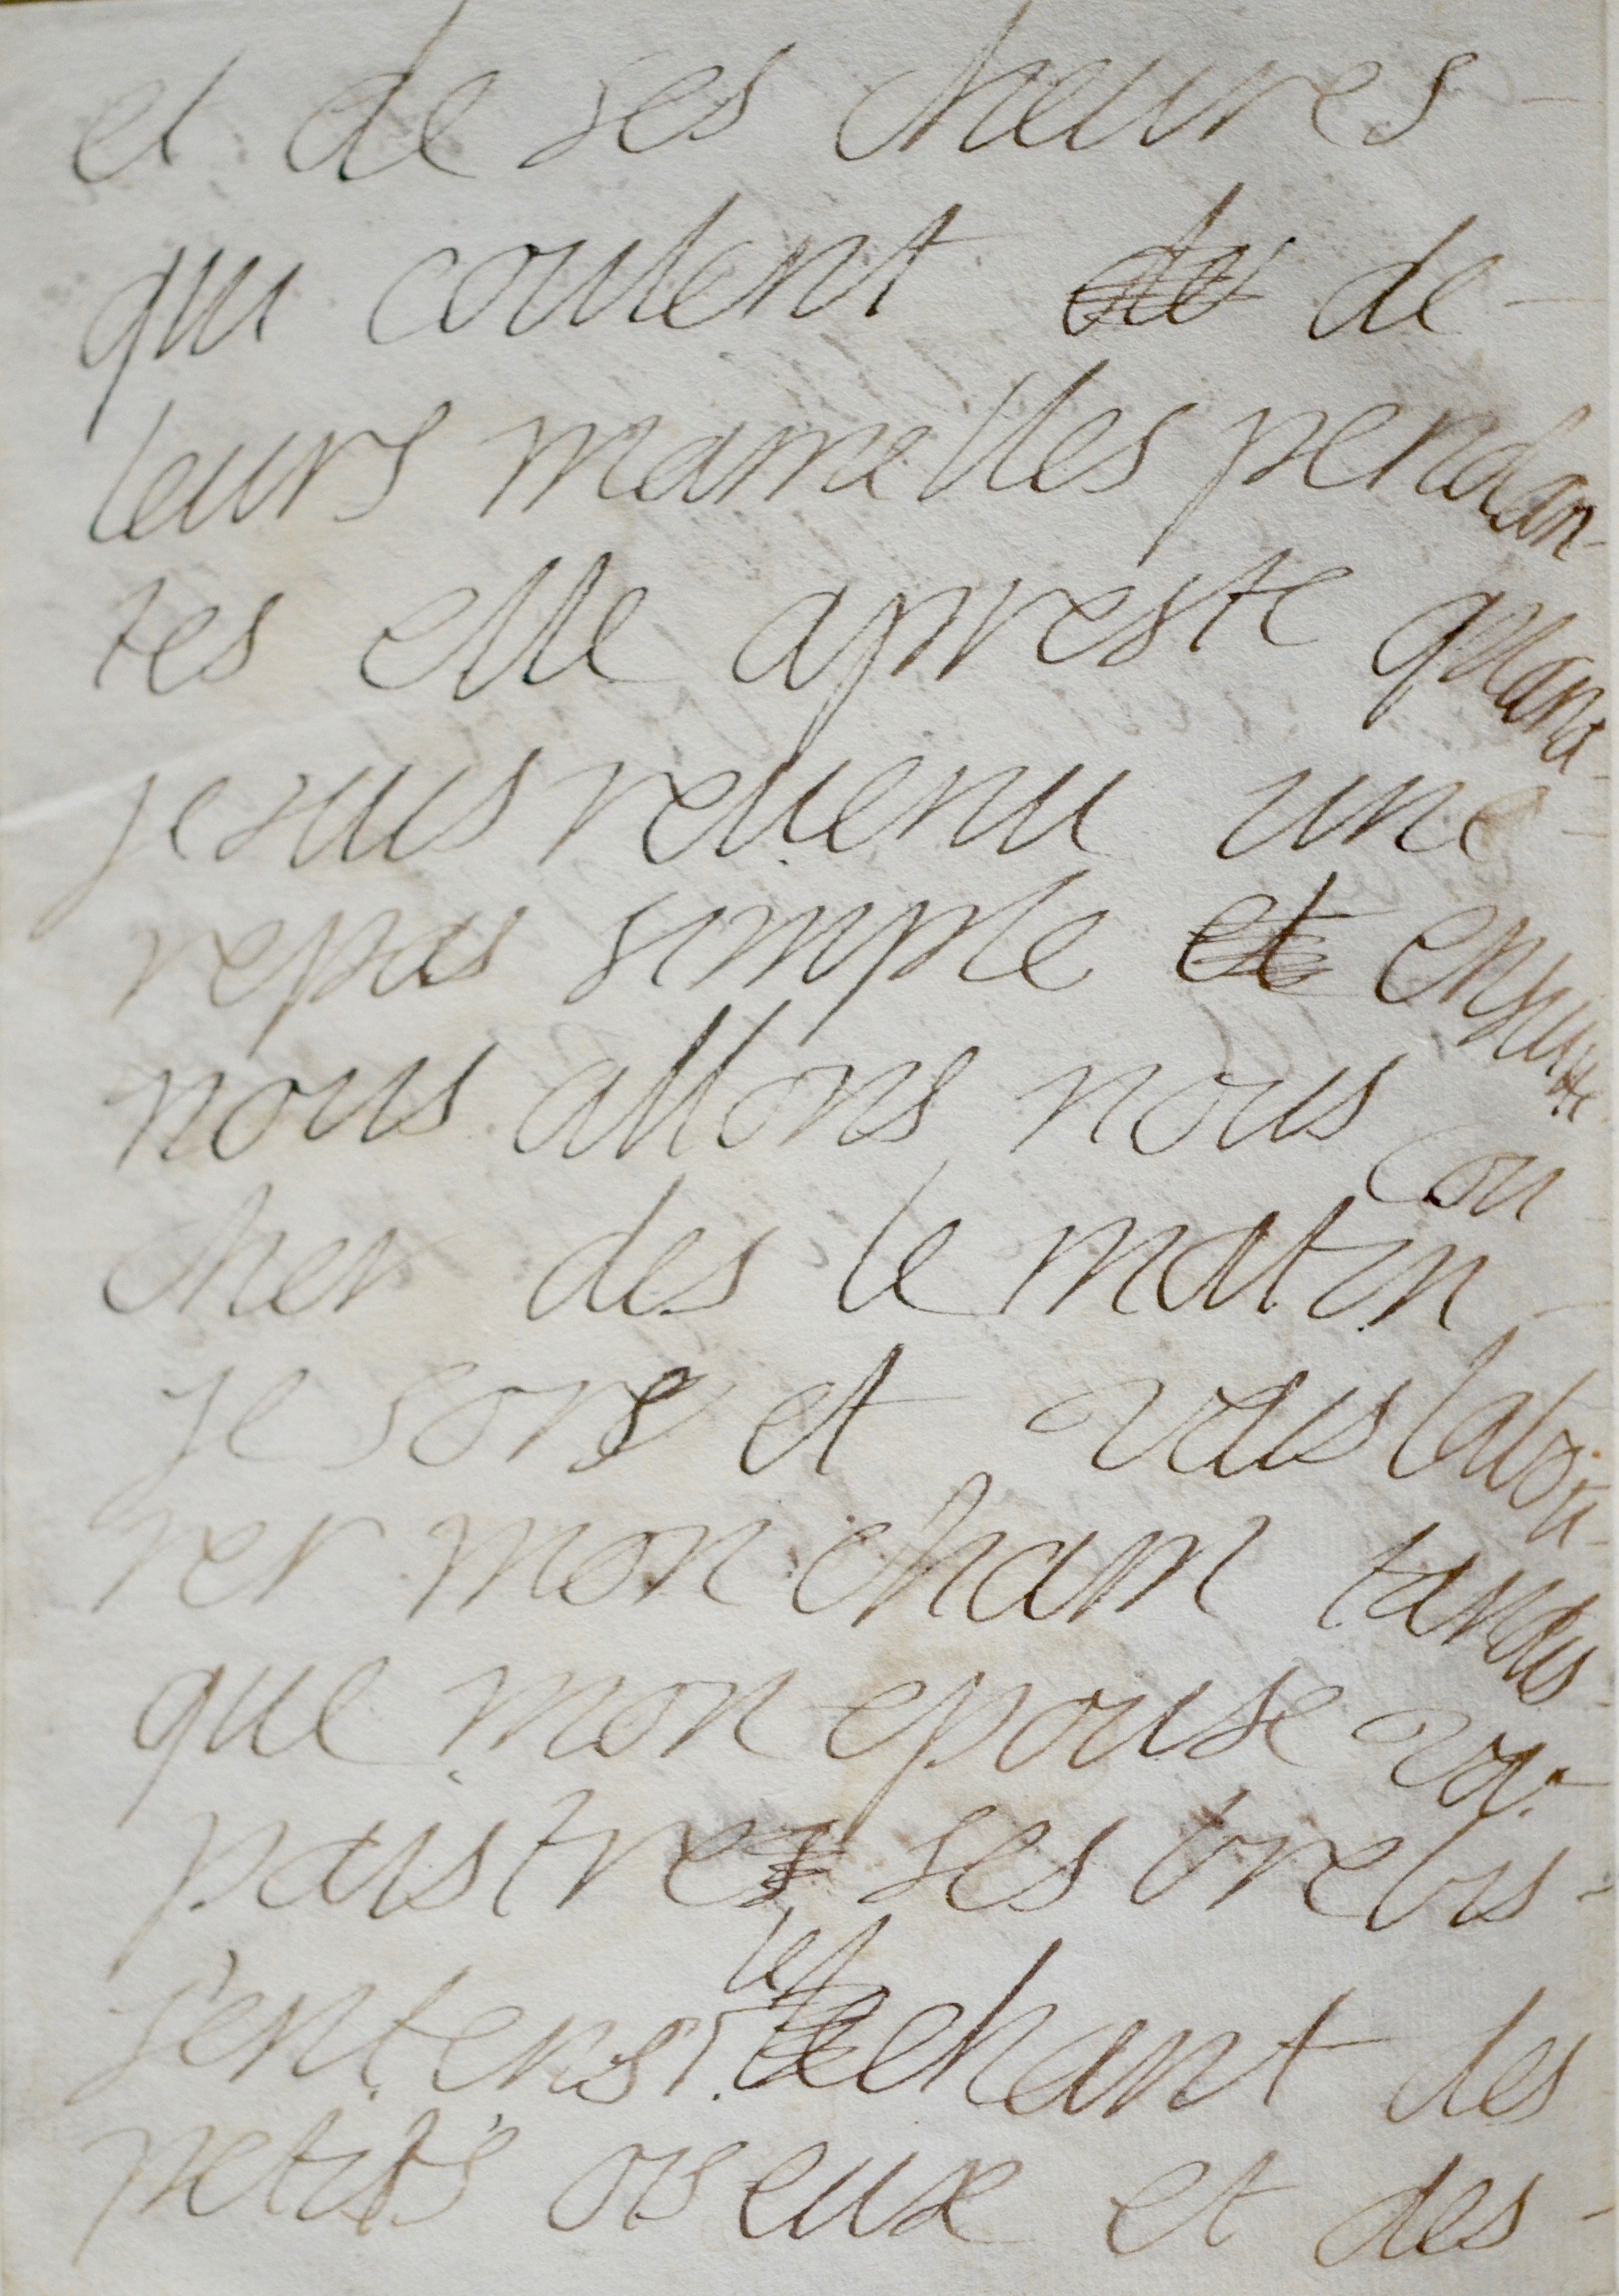 et de ses cheures
qui coulent de de
leurs mamelles pendan-
tes elle apreste quand
je suis reuenu une
repas simple et ensuitte
nous allons nous cou
cher des le matin
je sors et vais labou-
rer mon cham tandis
que mon epouse va
paistre ses brebis
les
j'entens le chant des
petits oiseux et des